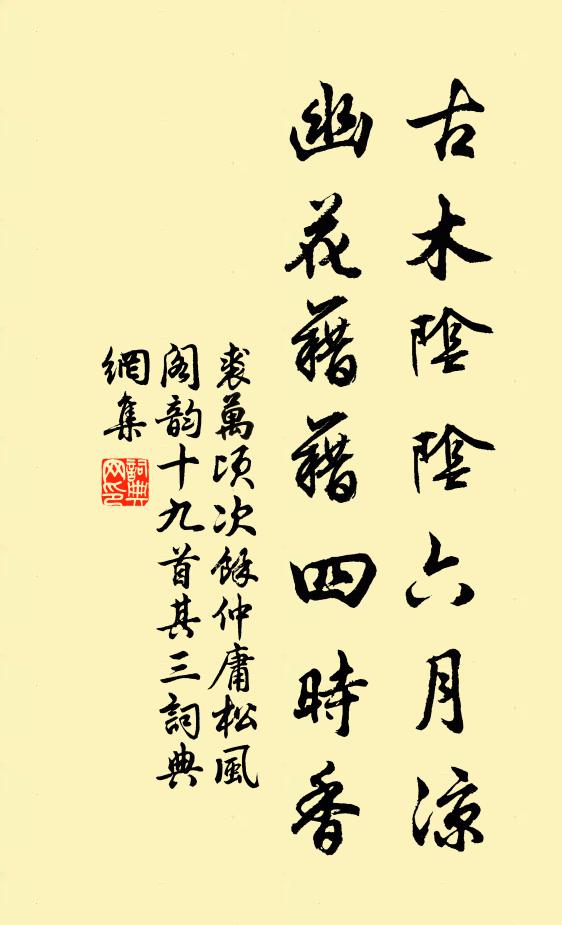 古木陰陰六月凉
幽花藉藉四時香
裘萬頃次餘仲庸松風
阁韵十九首其三詞典
網集
詞典
网印